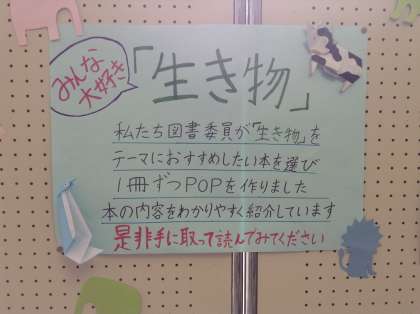 みんな
大好き
「生き物」
私たち図書委員が「生き物」を
テーマにおすすめしたい本を選び
1冊ずつPOPを作りました
本の内容をわかりやすく紹介しています
是非手に取って読んでみてください